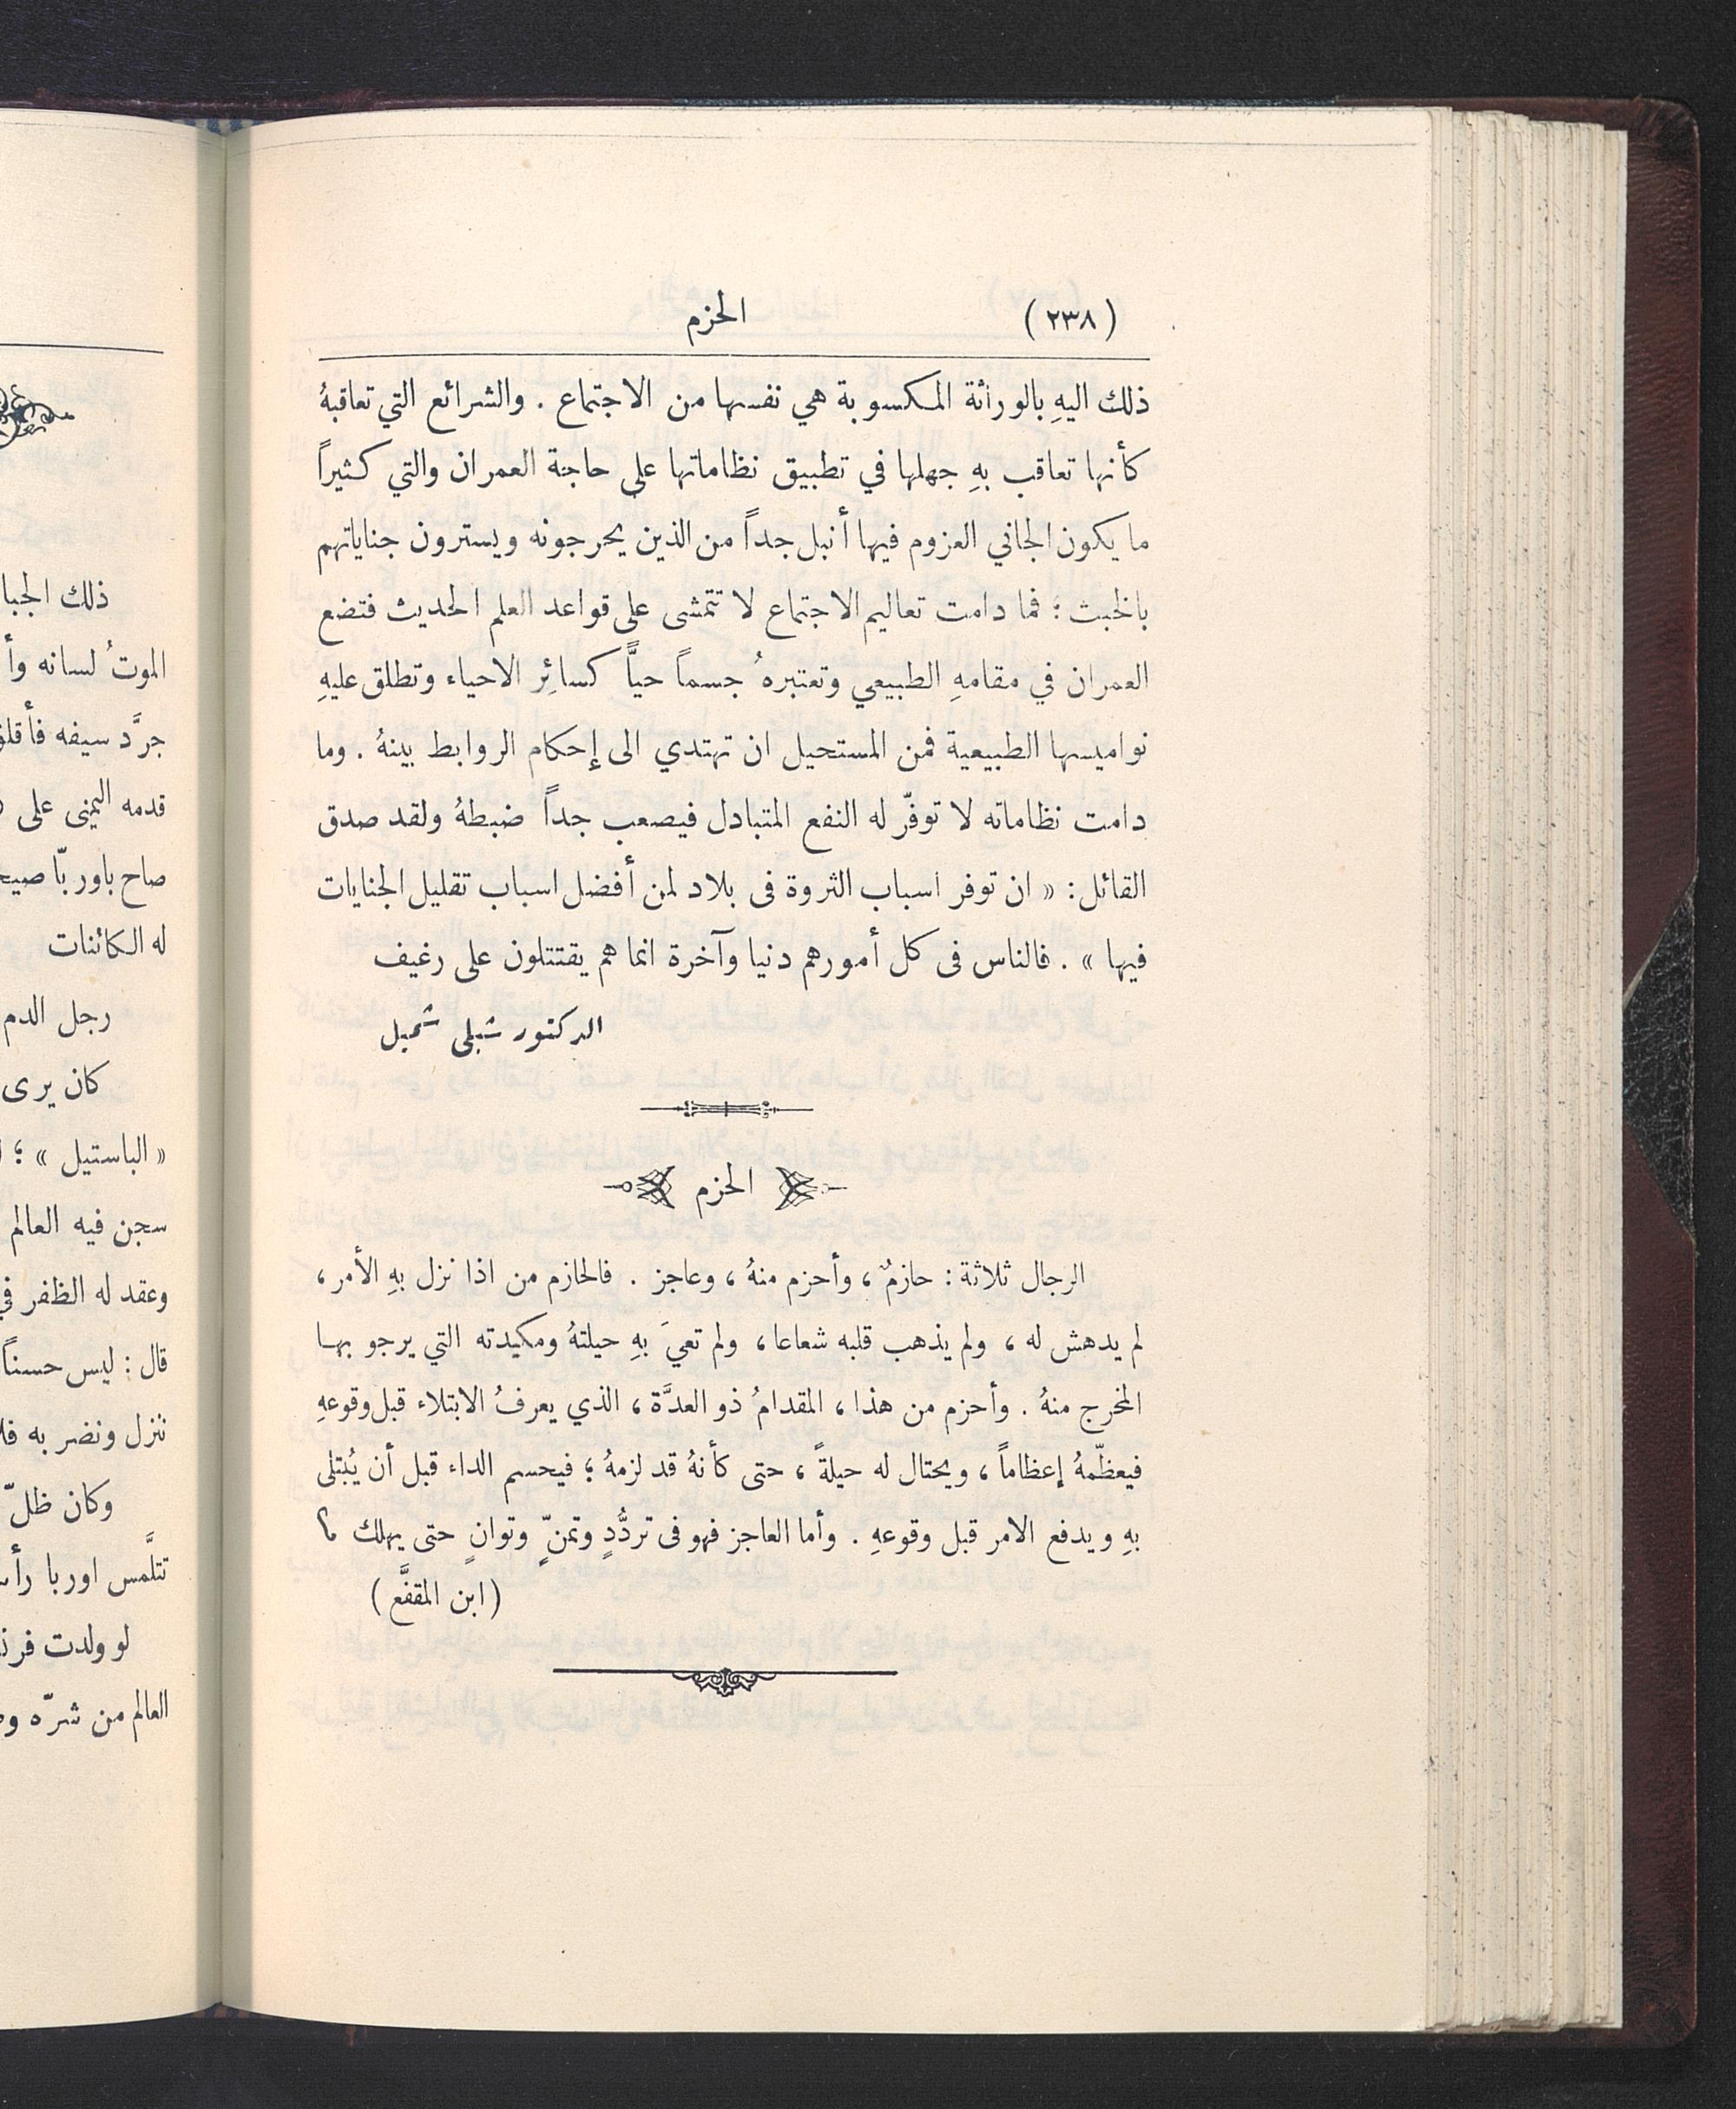 (٢٣٨) الحزم
ذلك اليهِ بالوراثة المكسوبة هي نفسها من الاجتماع . والشرائع التي تعاقبهُ
كأنها تعاقب بهِ جهلها في تطبيق نظاماتها على حاجة العمران والتي كثيراً
ما يكون الجاني العزوم فيها أنبل جداً من الذين يحرجونه ويسترون جناياتهم
بالخبث ؛ فما دامت تعاليم الاجتماع لا تتمشى على قواعد العلم الحديث فتضع
العمران في مقامهِ الطبيعي وتعتبرهُ جسماً حياًّ كسائِر الاحياء وتطلق عليهِ
نواميسها الطبيعية فمن المستحيل ان تهتدي الى إحكام الروابط بينهُ . وما
دامت نظاماته لا توفّر له النفع المتبادل فيصعب جداً ضبطهُ ولقد صدق
القائل : « ان توفر اسباب الثروة فى بلاد لمن أفضل اسباب تقليل الجنايات
فيها » . فالناس فى كل أمورهم دنيا وآخرة انما هم يقتتلون على رغيف
الدكتور شبلى شميل
الحزم
الرجال ثلاثة : حازمٌ ، وأحزم منهُ ، وعاجز . فالحازم من اذا نزل بهِ الأمر ،
لم يدهش له ، ولم يذهب قلبه شعاعا ، ولم تعيَ بهِ حيلتهُ ومكيدته التي يرجو بها
المخرج منهُ . وأحزم من هذا ، المقدامُ ذو العدَّة ، الذي يعرفُ الابتلاء قبل وقوعهِ
فيعظّمهُ إعظاماً ، ويحتال له حيلةً ، حتى كأنهُ قد لزمهُ ؛ فيحسم الداء قبل أن يُبتلى
بهِ ويدفع الامر قبل وقوعهِ . وأما العاجز فهو فى تردُّدٍ وتمنٍّ وتوانٍ حتى يهلك
(ابن المقفَّع)
ذلك
الموتُ لسانه
جرَّد سيفه
قدمه اليمنى على
صاح باوربّا
له الكائنات
رجل الدم
كان يرى
« الباستيل » ؛
سجن فيه العالم
وعقد له الظفر في
قال : ليس حسناً
ننزل ونضر به
وكان ظلّ
تتلَّمس اوربا
لو ولدت
العالم من شرّه